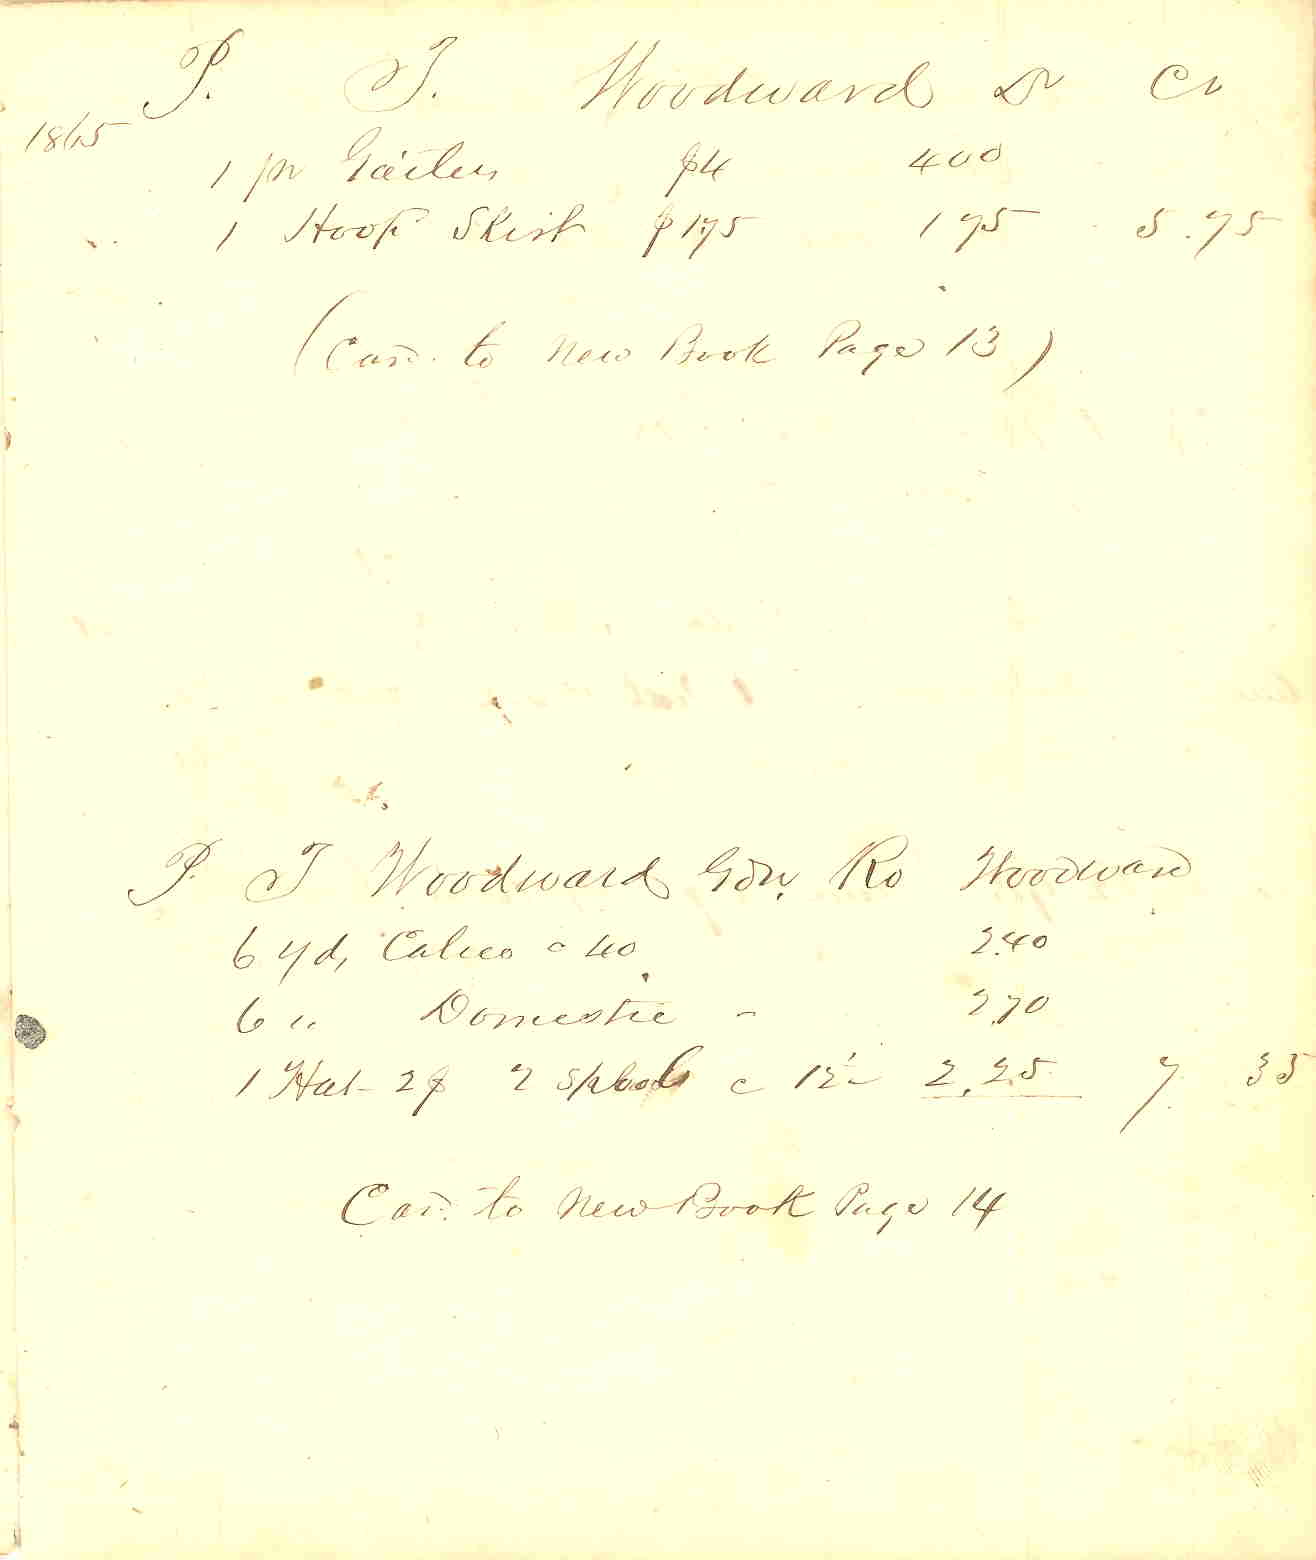 P. T. Woodward Dr Cr
1865
1 pr Gaiters $4 400
" 1 Hoop Skirt $1.75 1 75 5.75
(Card. to New Book Page 13)
P. T Woodward Gdn. Ro Woodward
6 yd, Calico c 40 2.40
6 " Domestic - 2.70
1 Hat 2$ 2 Spools c 12½ 2.25 7. 35
Card. to New Book Page 14